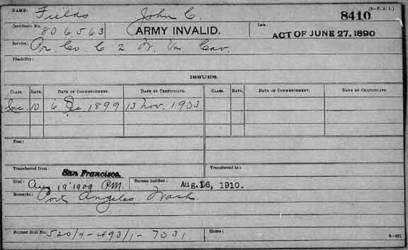 NAME: Fields John C. 8410
Certificate No. 806563 ARMY INVALID. Law: ACT OF JUNE 27, 1890
Service: Pr. Co. C 2 W. Va Cav.
Disability:
ISSUES.
CLASS. RATE. DATE OF COMMENCEMENT. DATE OF CERTIFICATE. CLASS. RATE. DATE OF COMMENCEMENT. DATE OF CERTIFICATE.
10 6 1899 13 Nov. 1903
Fee: Fee:
Transferred from San Francisco Transferred to
Died: Aug 19 1909 P.M. Bureau notified Aug. 16, 1910.
Remarks: Port Angeles Wash
Former Roll No.
Home: